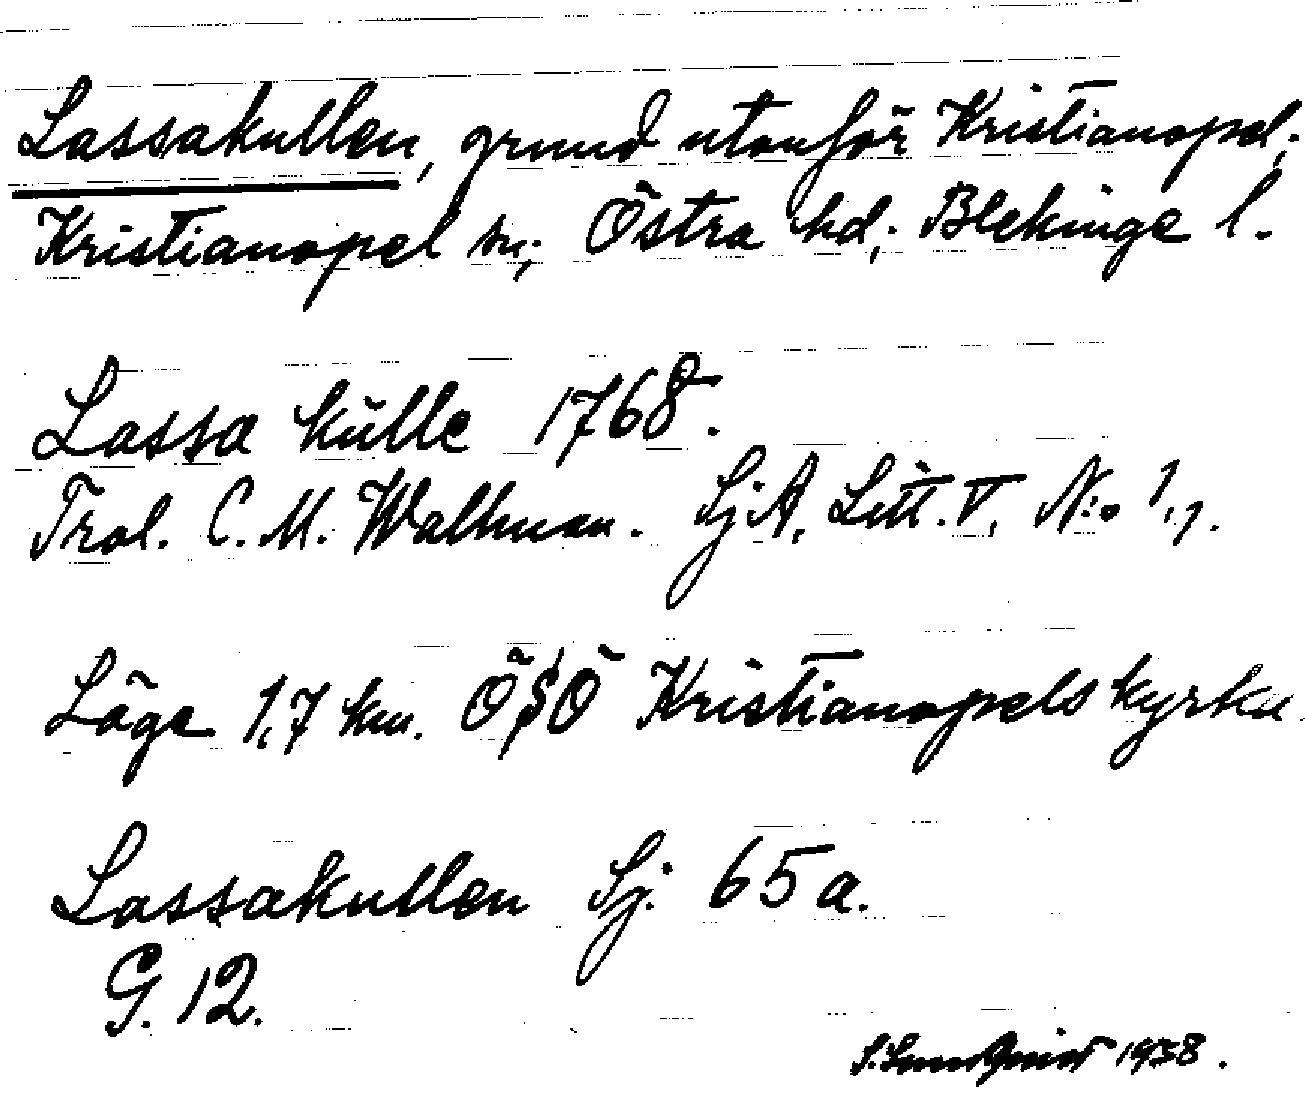 Lassakullen, grund utanför Kristianopel;
Kristianopel sn; Östra hd; Blekinge l.
Lassa kulle 1768.
Trol. C. M. Wallman. Sj A, Litt. V, N:o 1,1.
Läge 1,7 km. ÖSÖ Kristianopels kyrka
Lassakullen Sj. 65a.
G. 12.
S. Sundquist 1938.